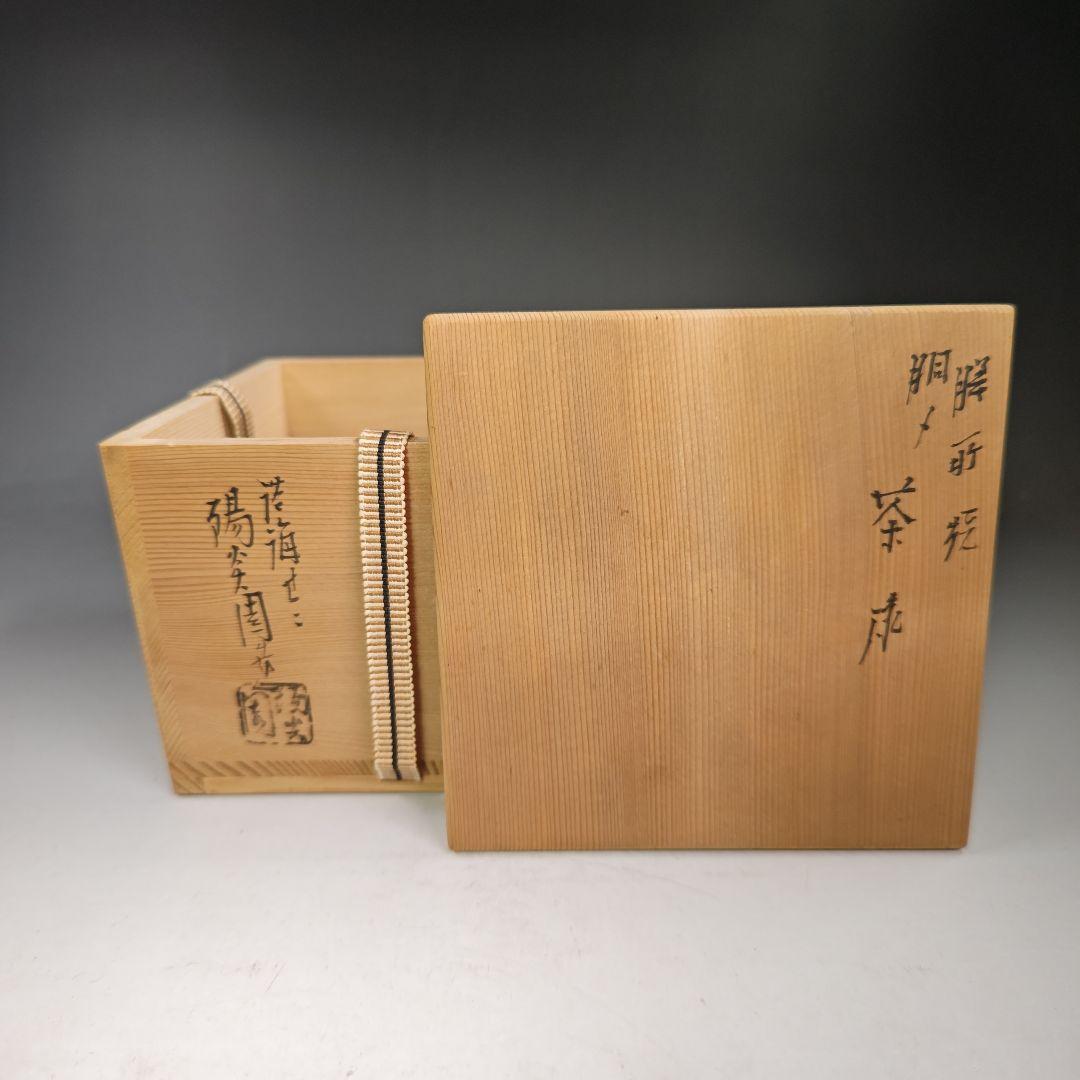 膳所焼
胴〆
茶碗
淡海
陽炎園造
陽炎園